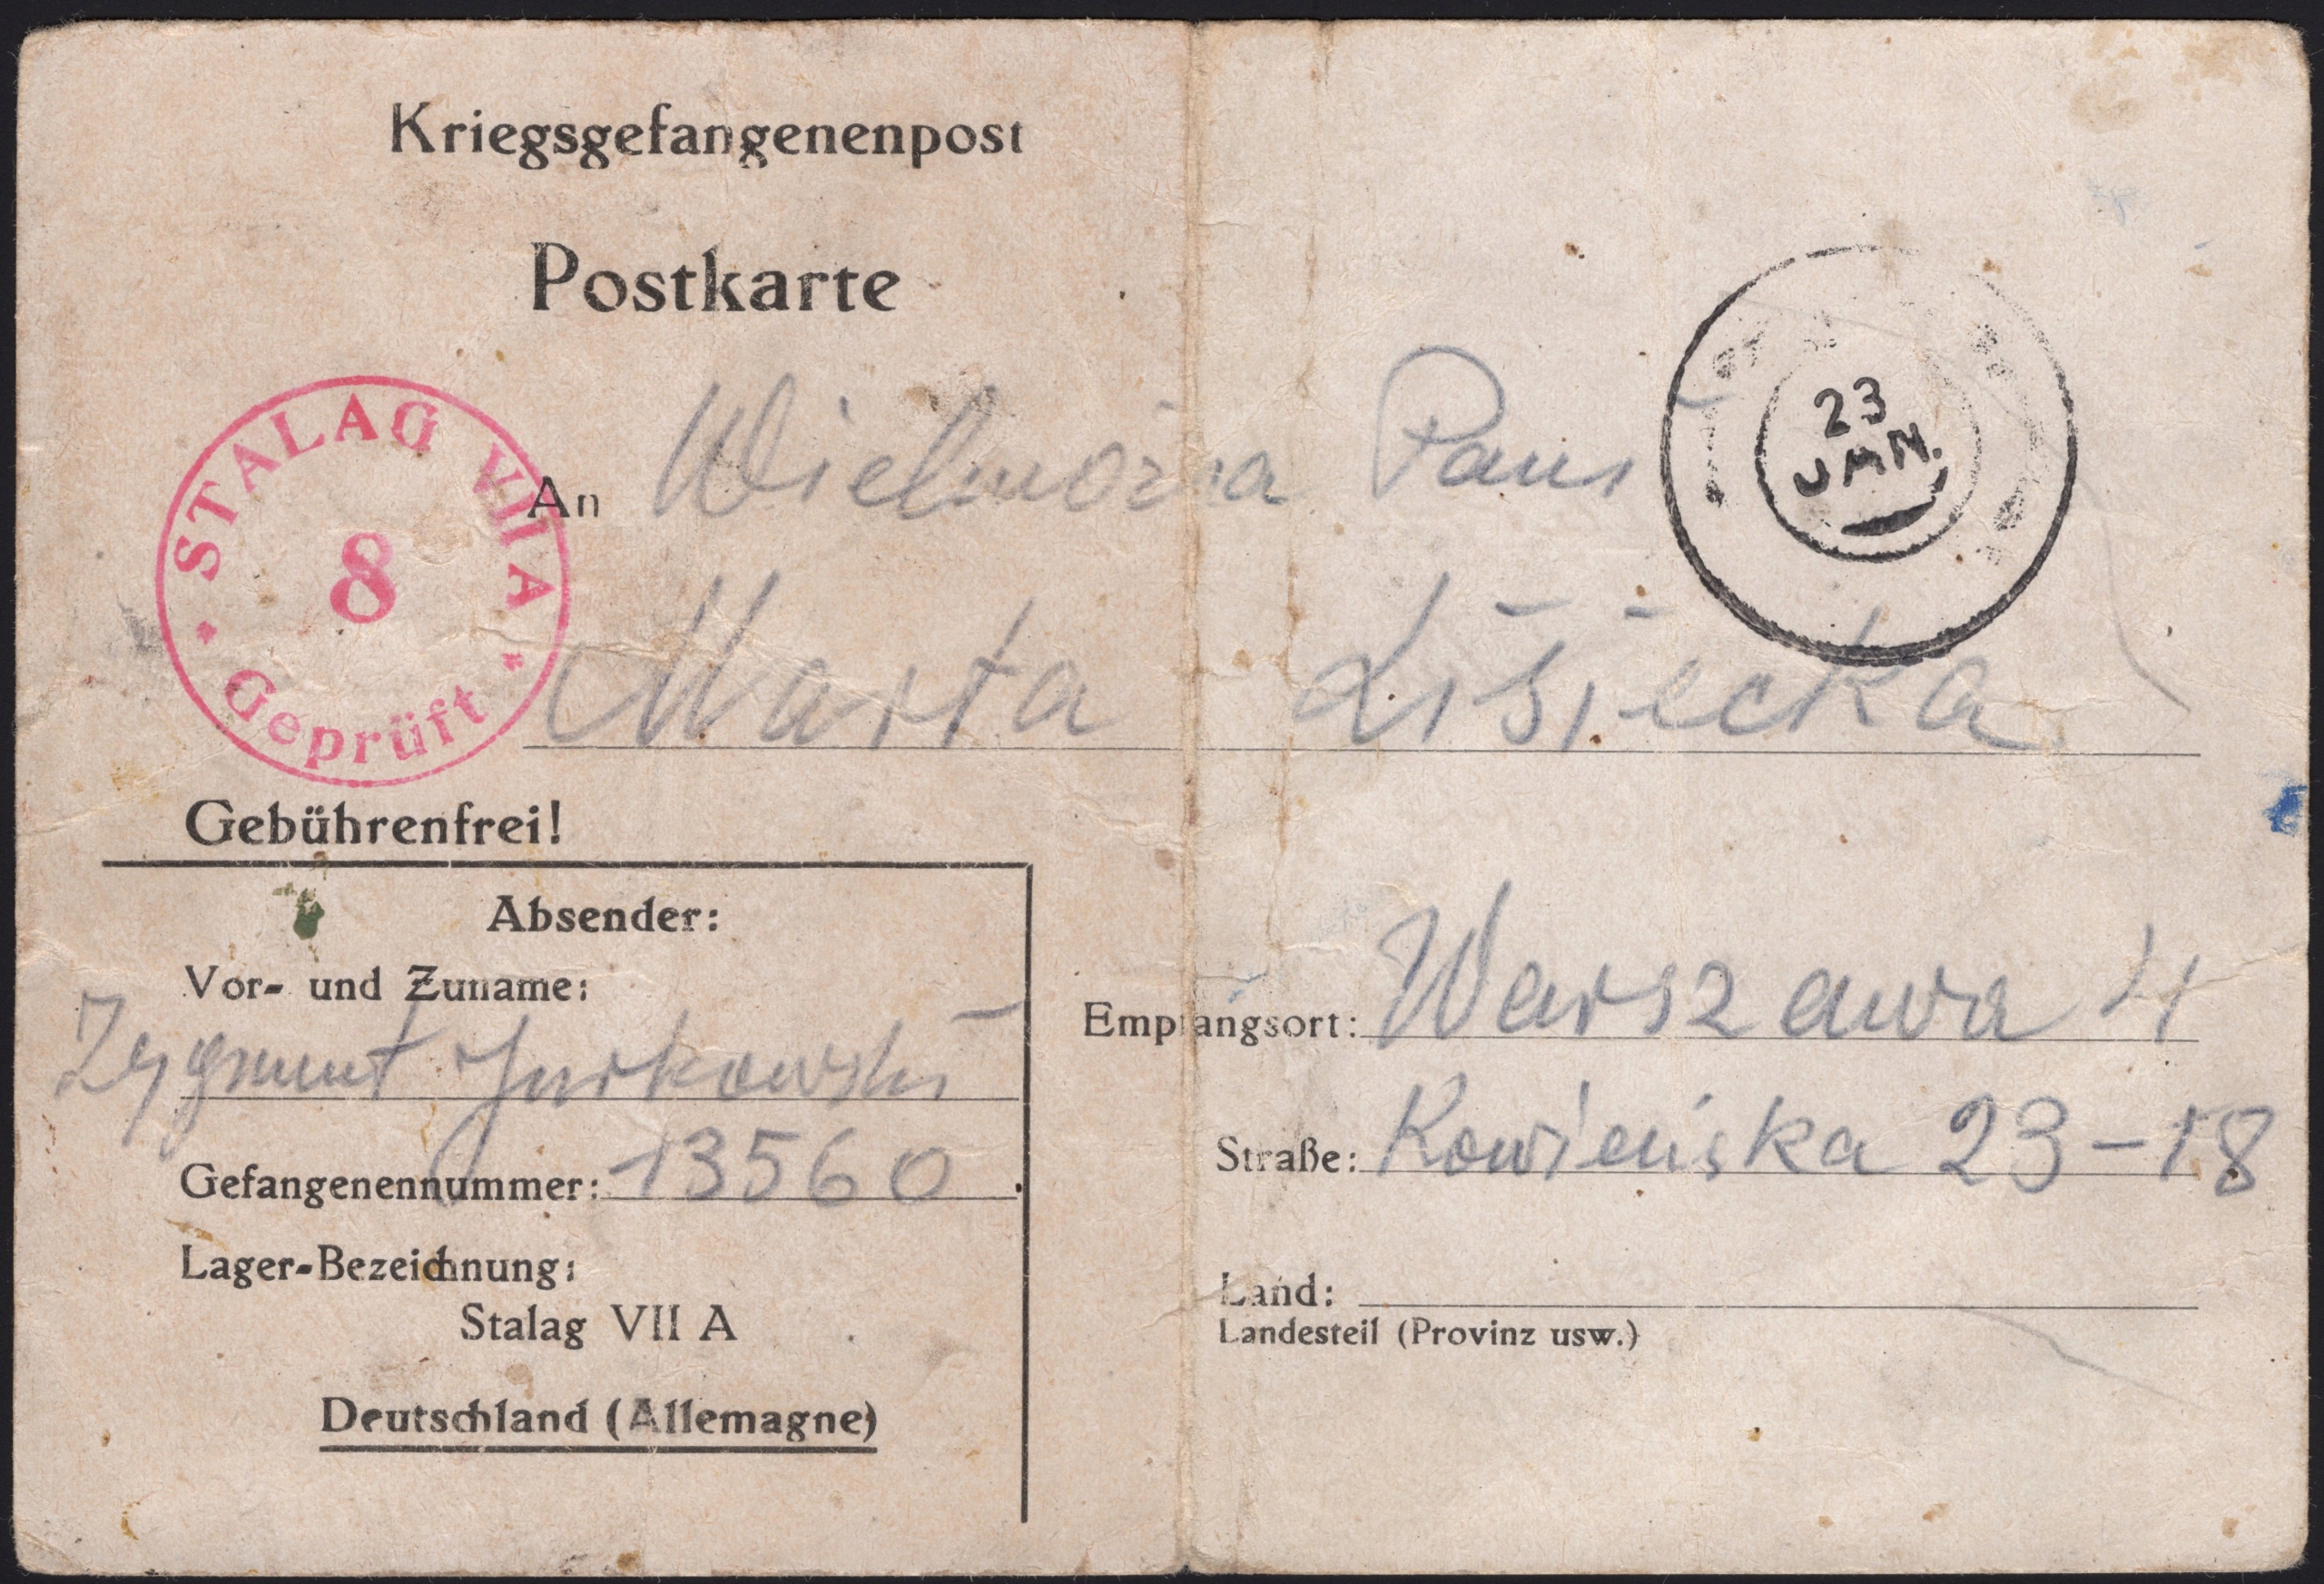 Kriegsgefangenenpost
Postkarte
STALAG VII A
8
Geprüft
23
JAN.
An Wielmożna Pani
Marta Lisiecka
Gebührenfrei!
Absender:
Vor- und Zuname:
Zygmunt Jurkowski
Gefangenennummer: 13560
Lager-Bezeichnung:
Stalag VII A
Deutschland (Allemagne)
Empfangsort: Warszawa 4
Straße: Kowieńska 23-18
Land:
Landesteil (Provinz usw.)